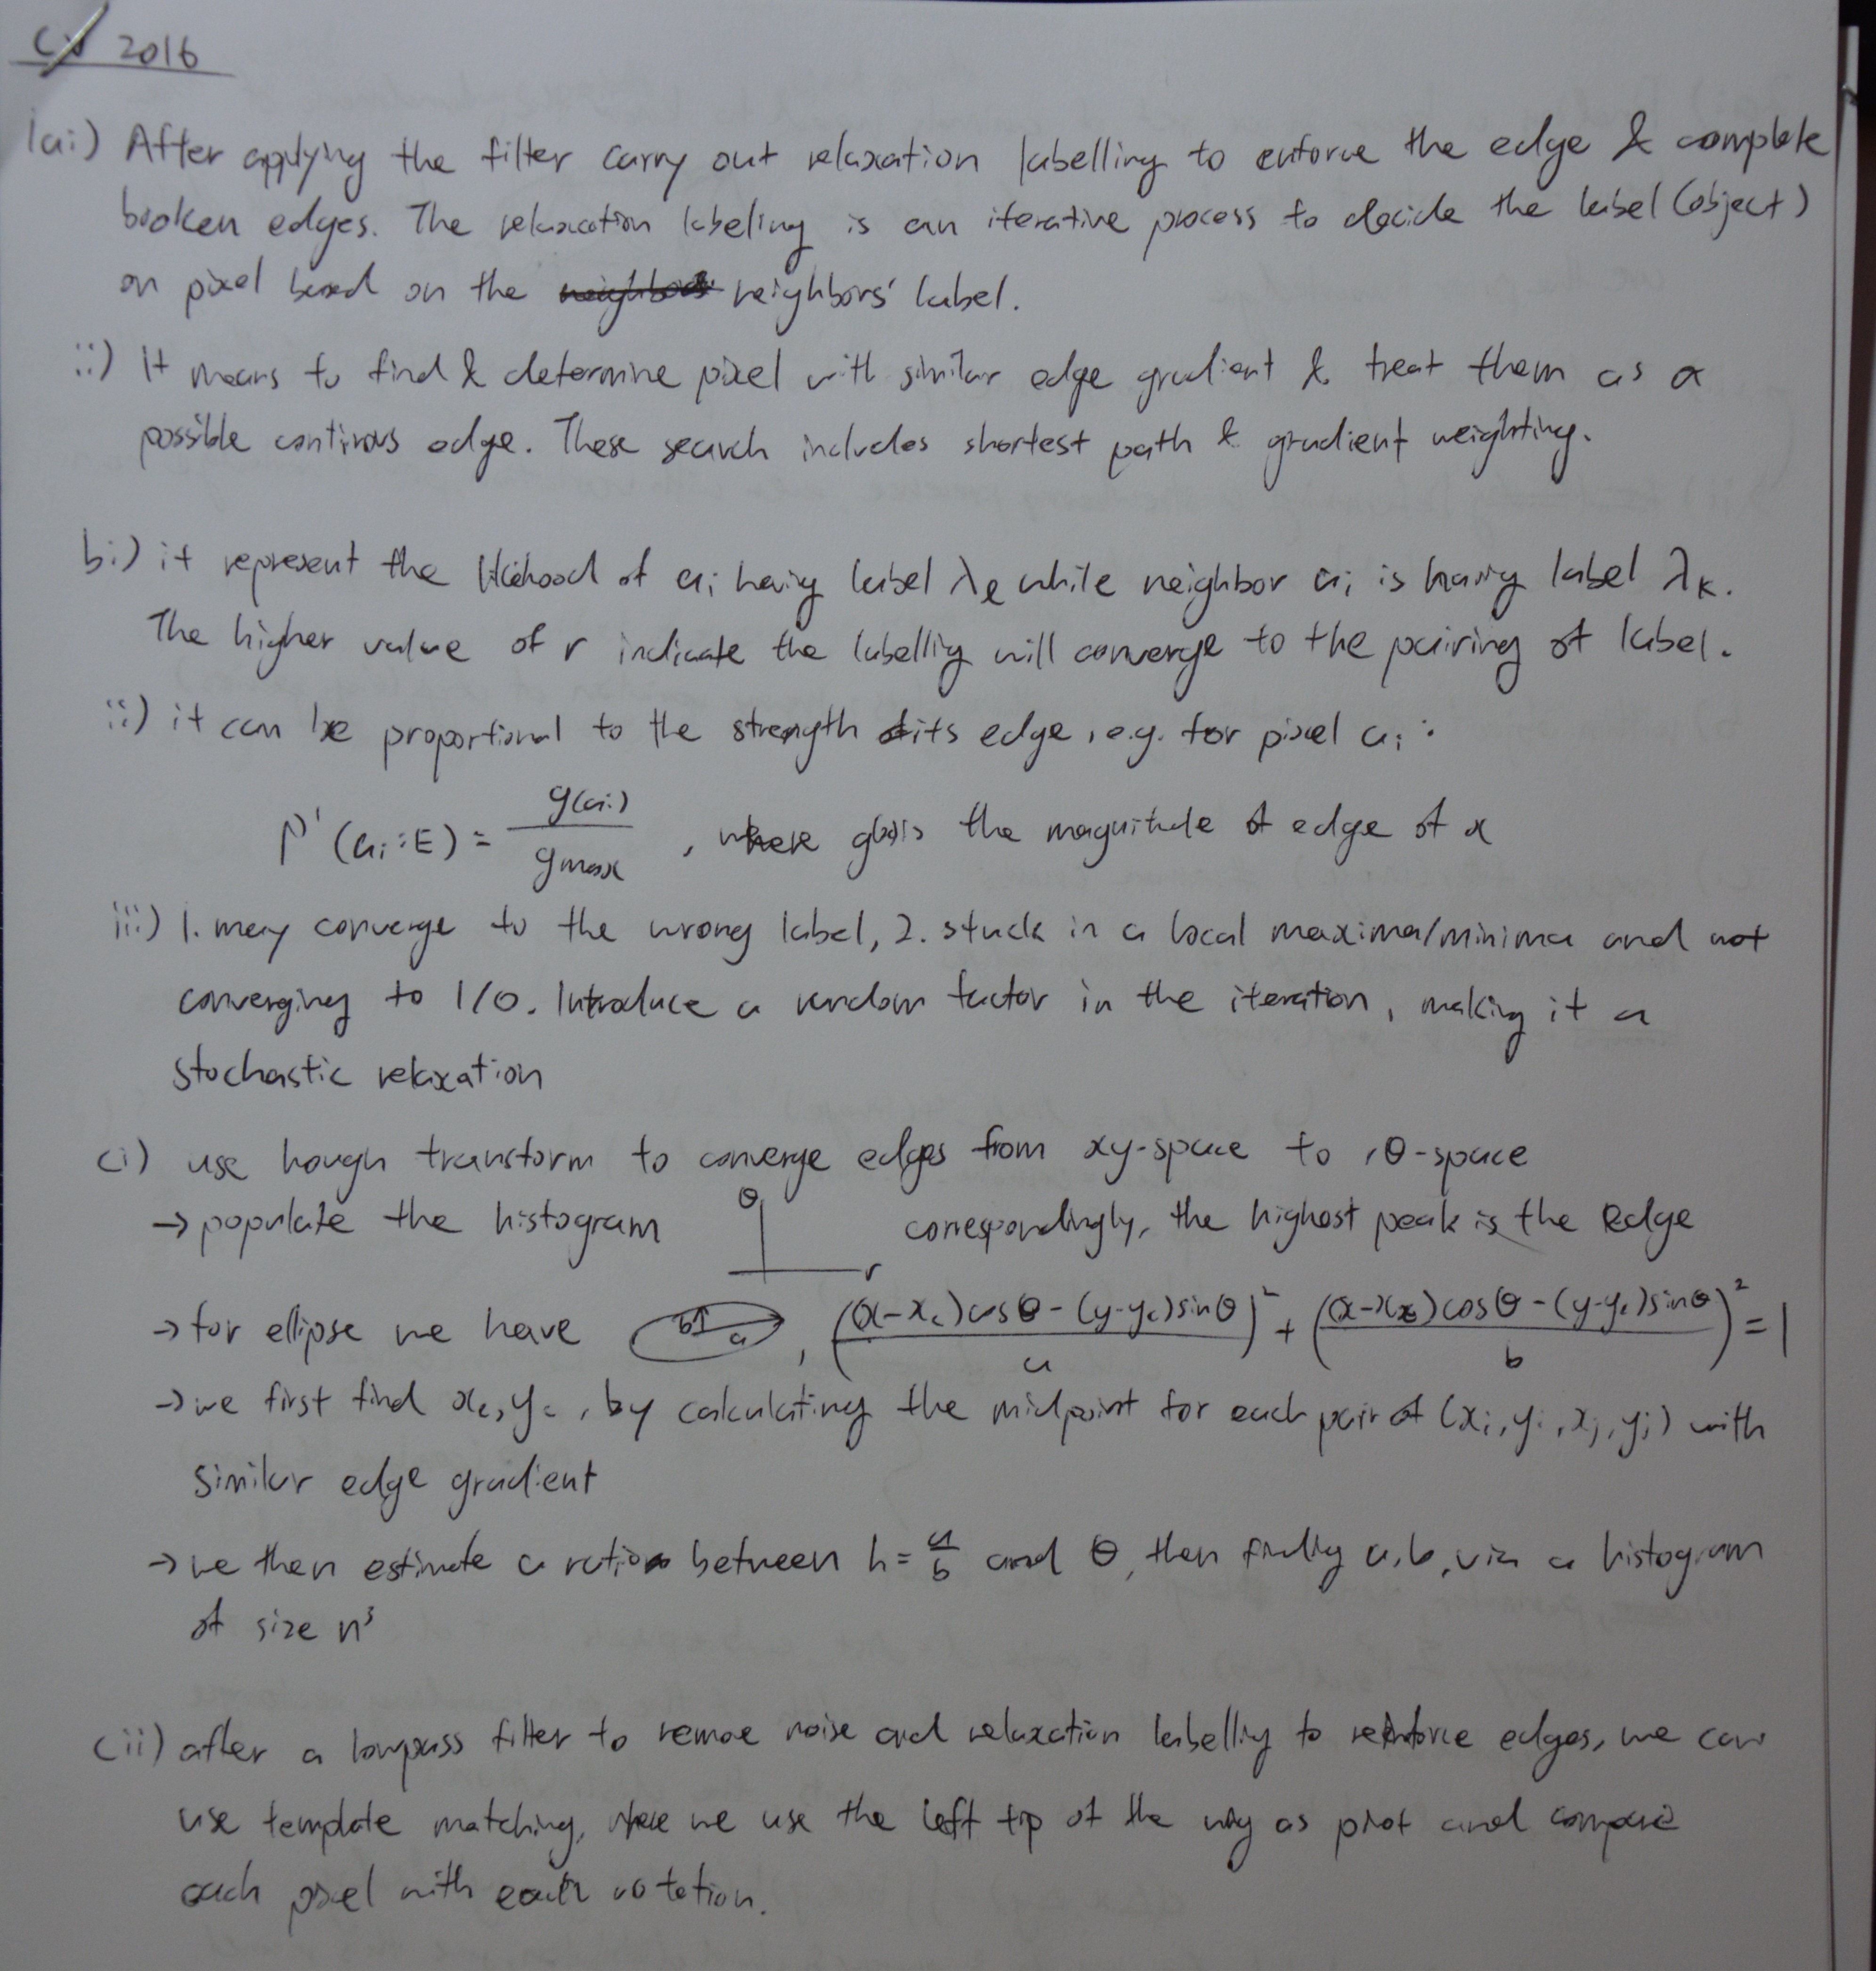 CV 2016
1ai) After applying the filter carry out relaxation labelling to enforce the edge & complete
broken edges. The relaxation labeling is an iterative process to decide the label (object)
on pixel based on the neighbors' label.
ii) It means to find & determine pixel with similar edge gradient & treat them as a
possible continous edge. These search includes shortest path & gradient weighting.
bi) it represent the likihood of ai having label λℓ while neighbor aj is having label λk.
The higher value of r indicate the labelling will converge to the pairing of label.
ii) it can be proportional to the strength of its edge, e.g. for pixel ai :
P'(ai:E) = g(ai) / gmax , where g(x) is the magnitude of edge of x
iii) 1. may converge to the wrong label, 2. stuck in a local maxima/minima and not
converging to 1/0. Introduce a random factor in the iteration, making it a
stochastic relaxation
ci) use hough transform to converge edges from xy-space to rθ-space
→ populate the histogram θ r correspondingly, the highest peak is the edge
→ for ellipse we have b a , (((x-xc)cosθ - (y-yc)sinθ) / a)² + (((x-xc)cosθ - (y-yc)sinθ) / b)² = 1
→ we first find xc, yc, by calculating the midpoint for each pair of (xi, yi, xj, yj) with
similar edge gradient
→ we then estimate a ratio between h = a/b and θ, then finally a, b, via a histogram
of size n³
cii) after a lowpass filter to remove noise and relaxation labelling to reinforce edges, we can
use template matching, where we use the left tip of the as pivot and compare
each pixel with each rotation.